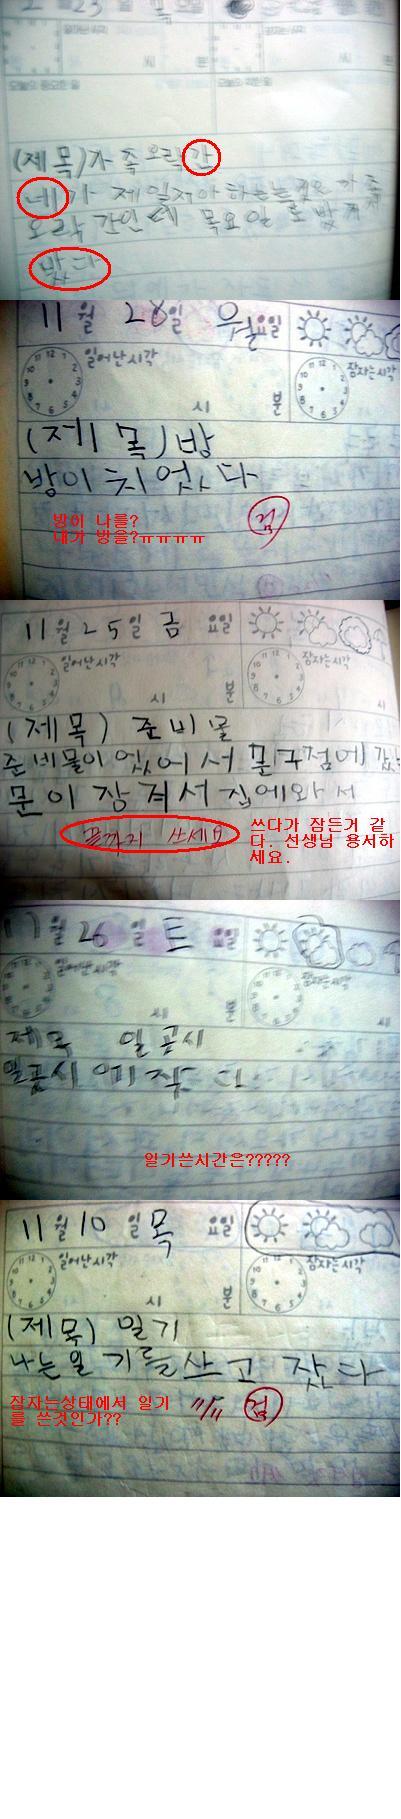 2월 23일 목요일
일어난시각
시
분
(제목)가족오락간
네가 제일저아하는는것은 가족
오락간인데 목요일
밨다
11월 28일 월요일
일어난시각
잠자는시각
시
분
(제목)방
방이 치었다
검
방이 나를?
내가 방을?ㅠㅠㅠㅠ
11월 25일 금요일
일어난시각
잠자는시각
시
분
시
(제목) 준비물
준네물이 없어서 문구점에 갔는
문이 잠겨서 집에와서
끝까지 쓰세요
쓰다가 잠든거 같
다. 선생님 용서하
세요.
11월 26일 토요일
일어난시각
잠자는시각
시
분
시
제목 일곱시
일곱시에 자다
일기쓴시간은?????
11월 10일 목요일
일어난시각
잠자는시각
시
분
시
(제목) 일기
나는일기를쓰고 잤다
잠자는상태에서 일기
를 쓴것인가??
11/11 검